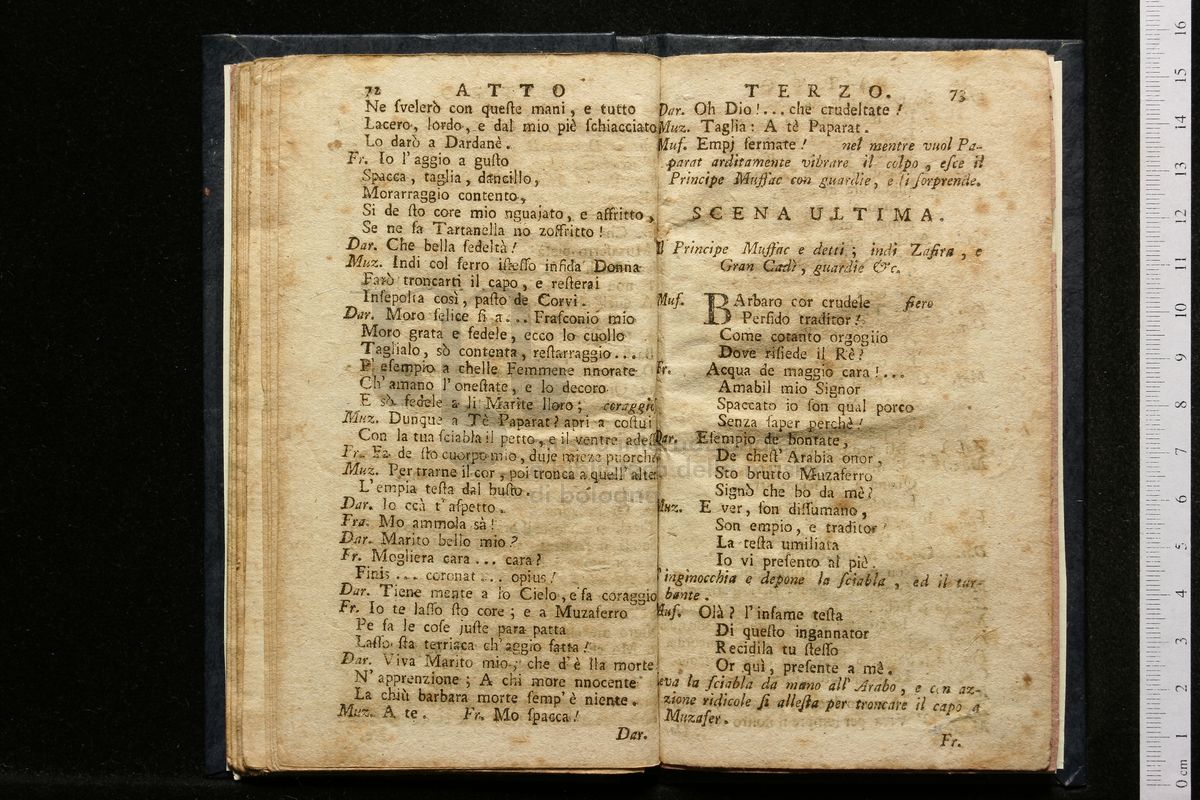 72 ATTO
Ne ſvelerò con queſte mani, e tutto
Lacero, lordo, e dal mio piè ſchiacciato
Lo darò a Dardanè.
Fr. Io l'aggio a guſto
Spacca, taglia, dancillo,
Morarraggio contento,
Si de ſto core mio nguajato, e affritto,
Se ne fa Tartanella no zoffritto!
Dar. Che bella fedeltà!
Muz. Indi col ferro iſteſſo infida Donna
Farò troncarti il capo, e reſterai
Inſepolta così, paſto de Corvi.
Dar. Moro felice ſi a... Fraſconio mio
Moro grata e fedele, ecco lo cuollo
Taglialo, sò contenta, reſtarraggio...
P' eſempio a chelle Femmene nnorate
Ch'amano l'oneſtate, e lo decoro
E sò fedele a li Marite lloro; coraggio
Muz. Dunque a Tè Paparat? apri a coſtui
Con la tua ſciabla il petto, e il ventre adeſ
Fr. Fa de ſto cuorpo mio, duje mieze puorche
Muz. Per trarne il cor, poi tronca a quell'alte
L'empia teſta dal buſto.
Dar. Io ccà t'aſpetto.
Fra. Mo ammola sà!
Dar. Marito bello mio?
Fr. Mogliera cara... cara?
Finis... coronat... opius!
Dar. Tiene mente a lo Cielo, e fa coraggio
Fr. Io te laſſo ſto core; e a Muzaferro
Pe fa le coſe juſte para patta
Laſſo ſta terriaca ch'aggio fatta!
Dar. Viva Marito mio, che d'è lla morte
N'apprenzione; A chi more nnocente
La chiù barbara morte ſemp'è niente.
Muz. A te. Fr. Mo ſpacca!
Dar.
TERZO. 73
Dar. Oh Dio!... che crudeltate!
Muz. Taglia: A tè Paparat.
Muſ. Empj fermate! nel mentre vuol Pa-
parat arditamente vibrare il colpo, eſce il
Principe Muſſac con guardie, e li ſorprende.
SCENA ULTIMA.
Il Principe Muſſac e detti; indi Zafira, e
Gran Cadì, guardie &c.
Muſ. BArbaro cor crudele fiero
Perfido traditor!
Come cotanto orgoglio
Dove riſiede il Rè?
Fr. Acqua de maggio cara!...
Amabil mio Signor
Spaccato io ſon qual porco
Senza ſaper perchè!
Dar. Eſempio de bontate,
De cheſt'Arabia onor,
Sto brutto Muzaferro
Signò che bo da mè?
Muz. E ver, ſon diſſumano,
Son empio, e traditor
La teſta umiliata
Io vi preſento al piè.
s'inginocchia e depone la ſciabla, ed il tur-
bante.
Muſ. Olà? l'infame teſta
Di queſto ingannator
Recidila tu ſteſſo
Or quì, preſente a mè.
leva la ſciabla da mano all'Arabo, e con az-
zione ridicole ſi alleſta per troncare il capo a
Muzafer.
Fr.